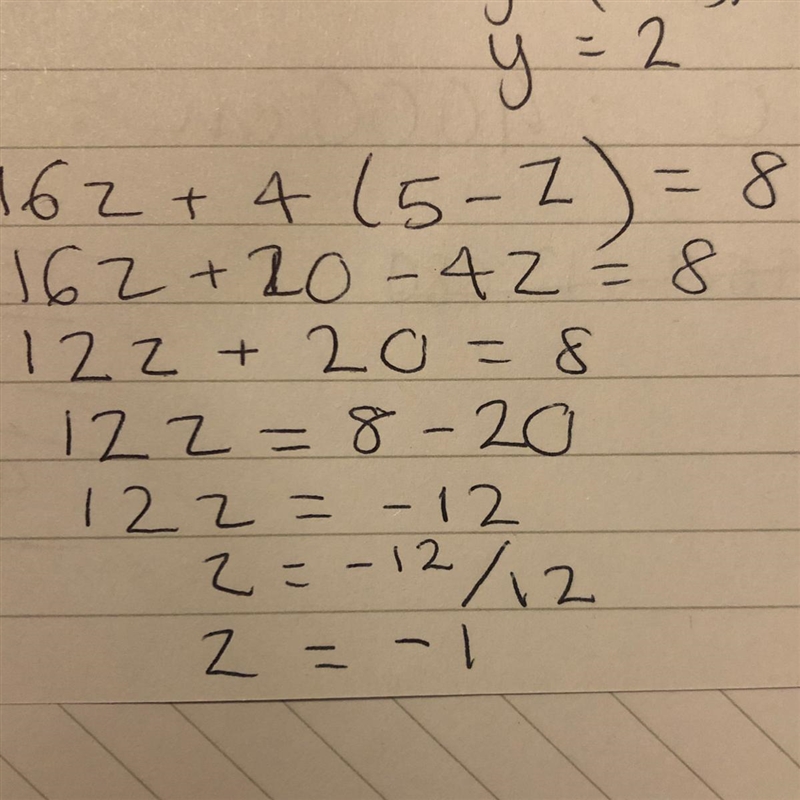 y = 2
16z + 4 (5 - z) = 8
16z + 20 - 4z = 8
12z + 20 = 8
12z = 8 - 20
12z = -12
z = -12/12
z = -1